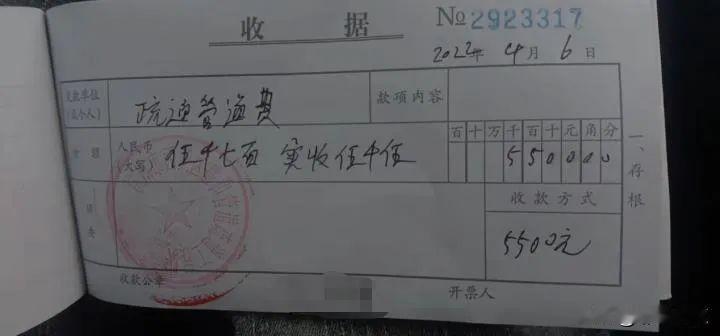 收据
№ 2923317
2022年 4月 6日
交款单位
(或个人)
疏通管道费
款项内容
金额
人民币
(大写)
伍千七百 实收伍千伍
百十万千百十元角分
550000
一、存根
收款方式
5500元
收款公章
开票人